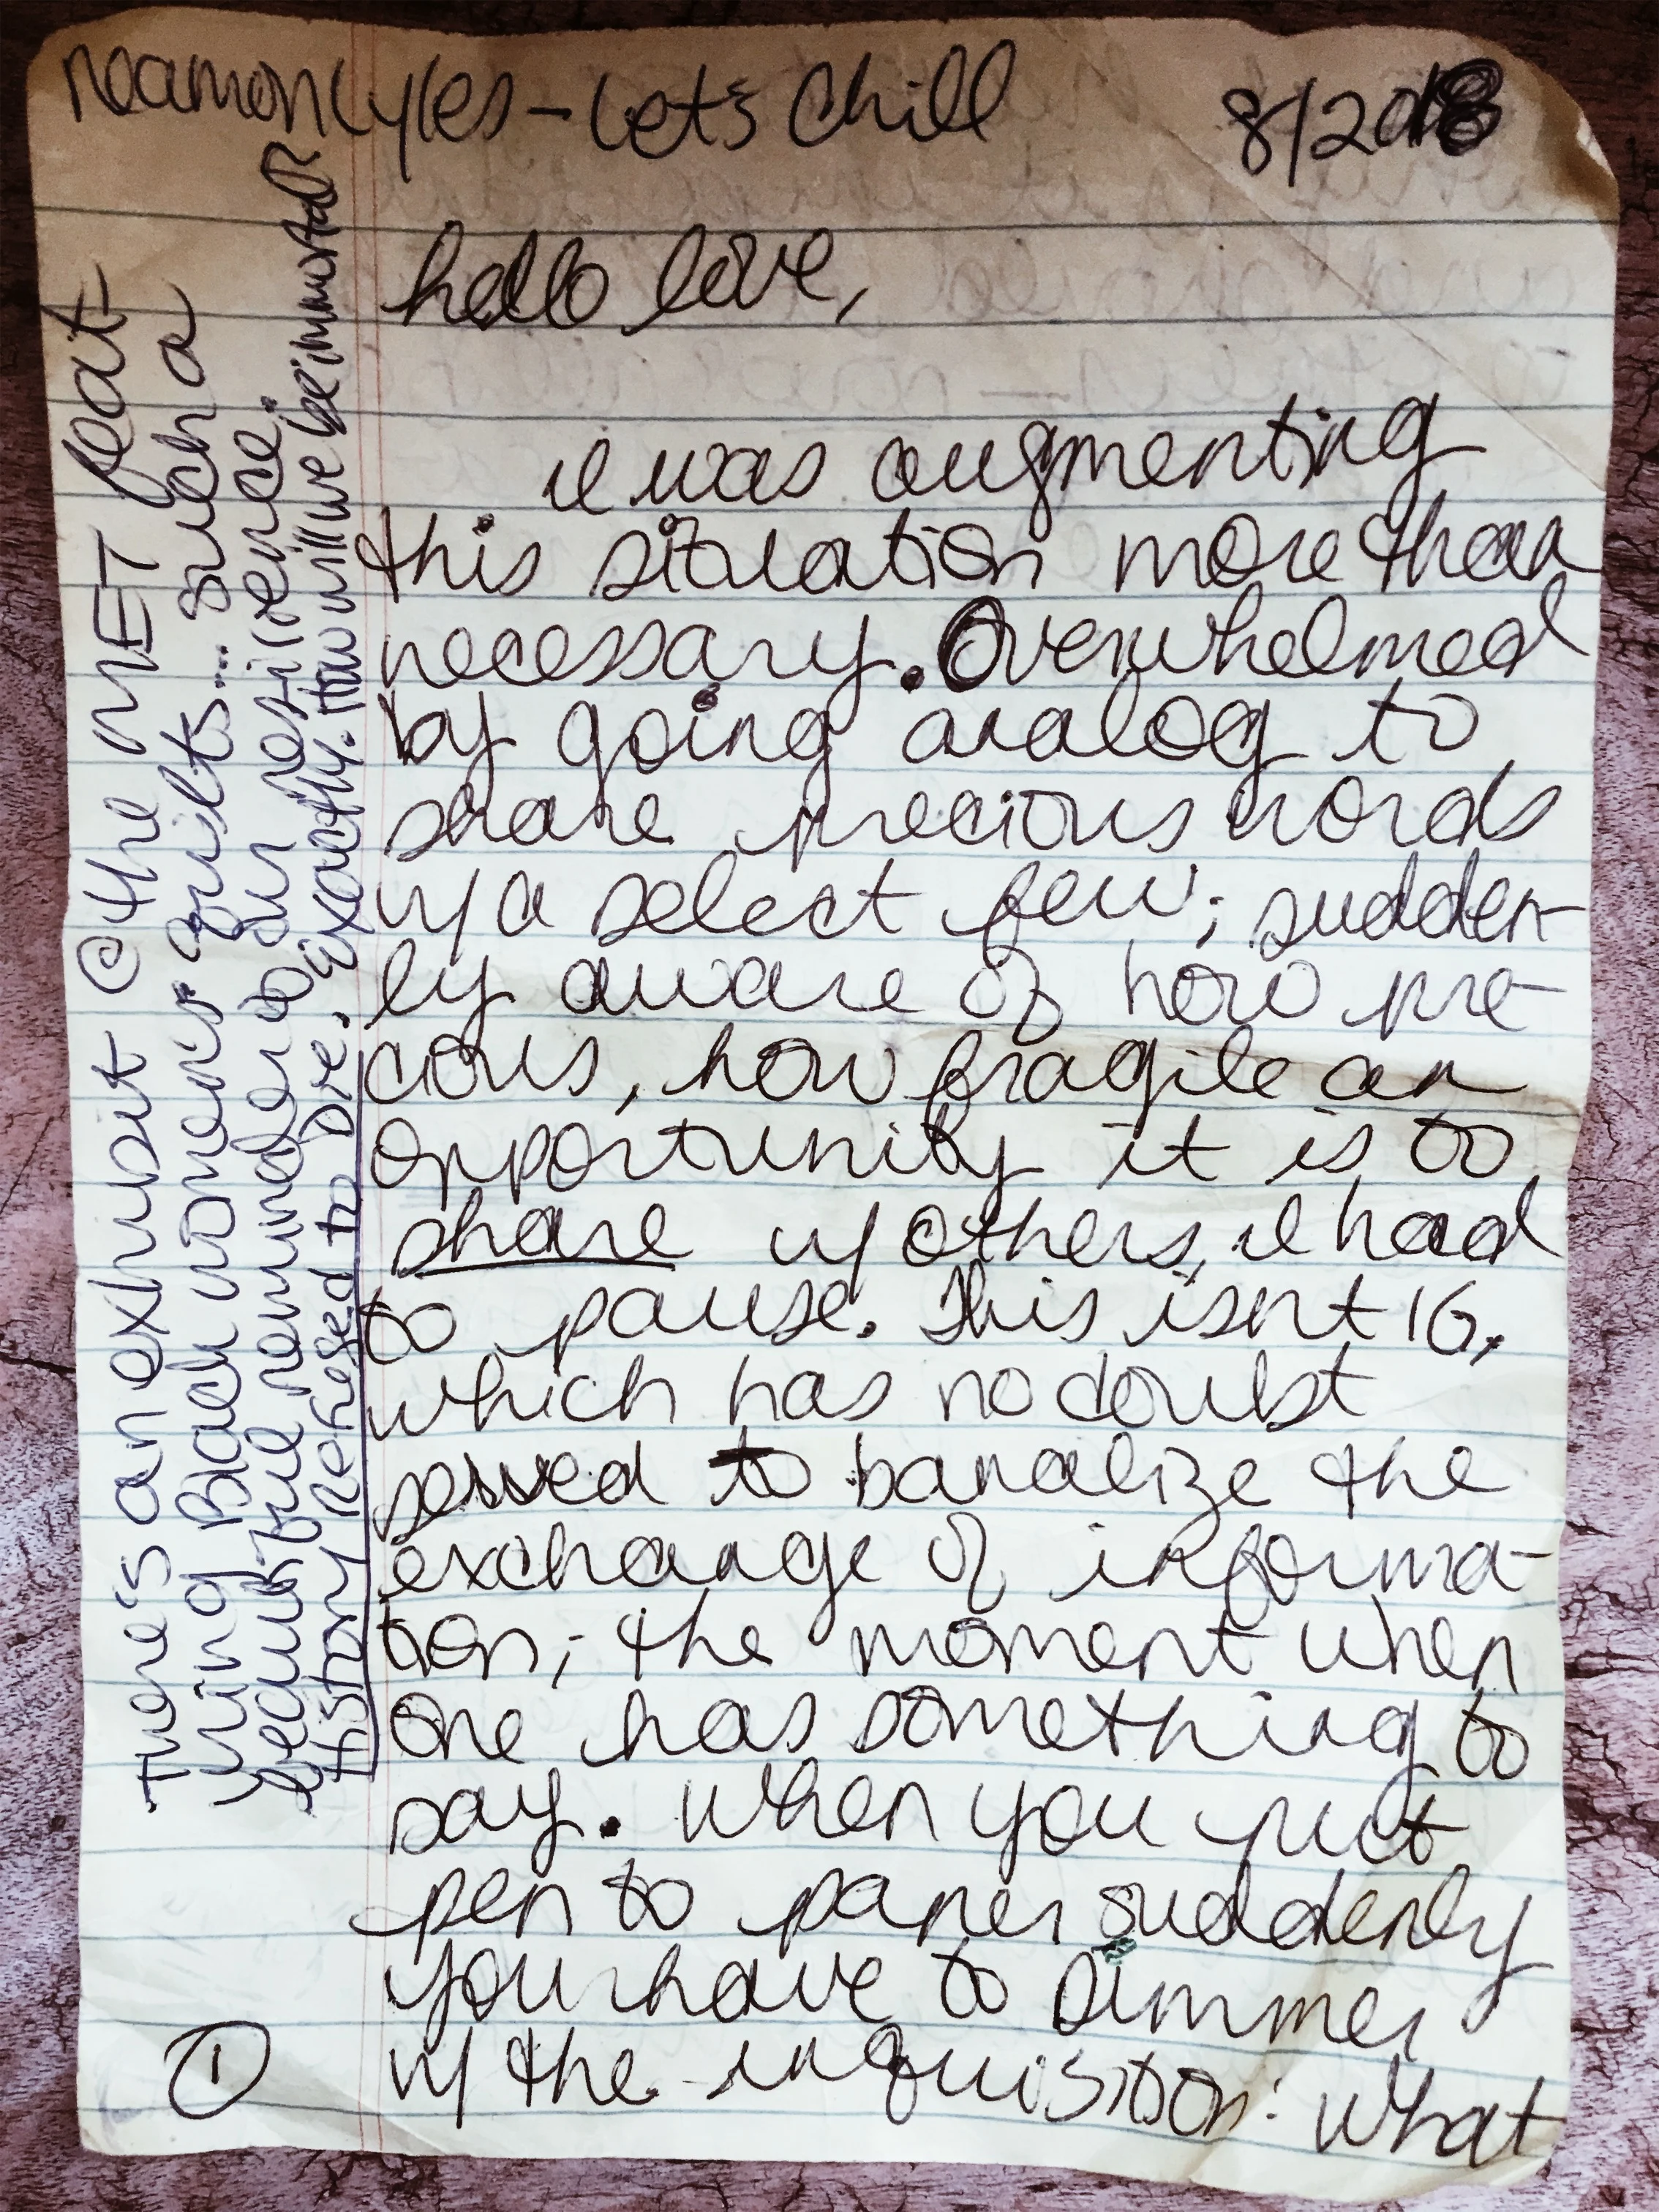 Reamon Lyles - Let's Chill 8/2018
hello love,
I was augmenting
this situation more than
necessary. Overwhelmed
by going analog to
share precious words
w/ a select few; sudden-
ly aware of how pre-
cious, how fragile an
opportunity it is to
share w/ others, I had
to pause. This isnt IG,
which has no doubt
served to banalize the
exchange of informa-
tion; the moment when
one has something to
say. When you put
pen to paper suddenly
you have to simmer
w/ the inquisition: What
①
There's an exhibit @ the MET feat-
uring Black women's quilts... such a
beautiful reminder to our resilience.
History refused to Die. Exactly. How will we be immortal?